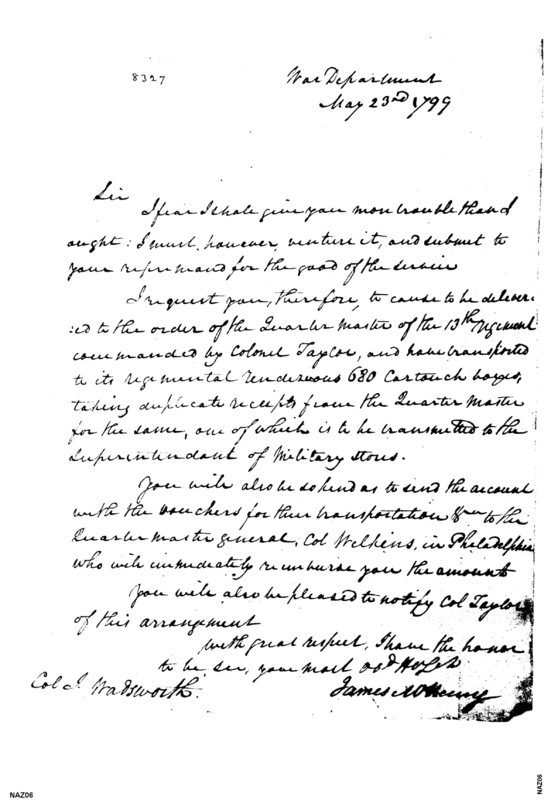 8327
War Department
May 23rd 1799
Sir
I fear I shall give you more trouble than I
ought: I must, however, venture it, and submit to
your reprimand for the good of the service
I request you, therefore, to cause to be deliver-
:ed to the order of the Quarter Master of the 13th regiment
commanded by Colonel Taylor, and have transported
to its regimental rendezvous 680 Cartouch boxes,
taking duplicate receipts from the Quarter Master
for the same, one of which is to be transmitted to the
Superintendant of Military stores.
You will also be so kind as to send the account
with the vouchers for their transportation &ca to the
Quarter Master general, Col Wilkins, in Philadelphia
who will immediately reimburse you the amount
You will also be pleased to notify Col Taylor
of this arrangement
with great respect, I have the honor
to be, sir, your most obd Hble St
James McHenry
Col J. Wadsworth.
NAZ06
NAZ06